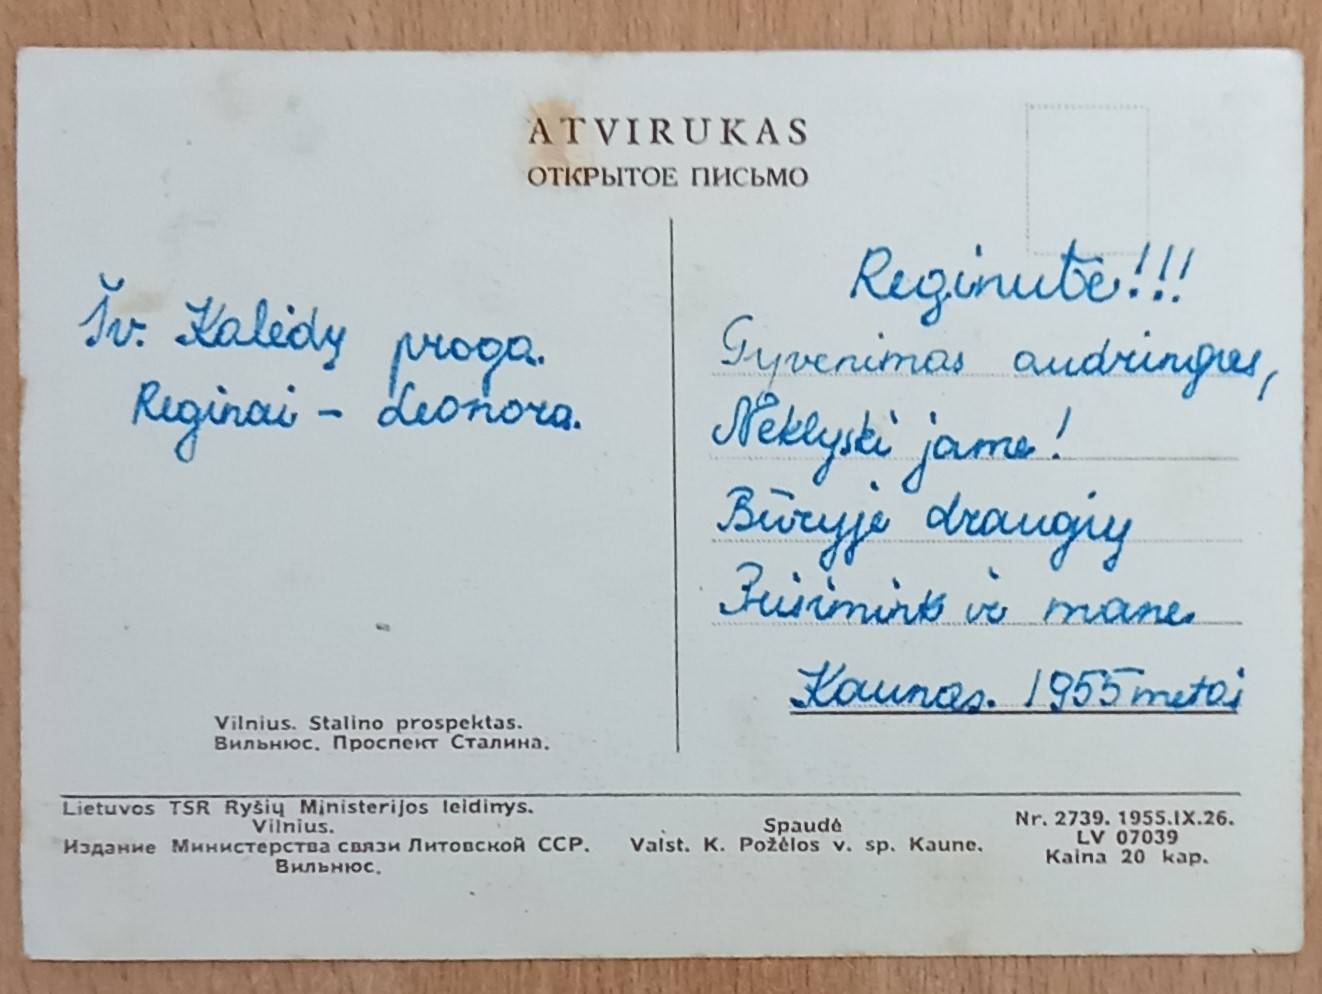 ATVIRUKAS
ОТКРЫТОЕ ПИСЬМО
Šv. Kalėdų proga.
Reginai - Leonora.
Vilnius. Stalino prospektas.
Вильнюс. Проспект Сталина.
Reginute!!!
Gyvenimas audringas,
Neklyski jame!
Būryje draugių
Prisimink ir mane.
Kaunas. 1955 metai
Lietuvos TSR Ryšių Ministerijos leidinys.
Vilnius.
Издание Министерства связи Литовской ССР.
Вильнюс.
Spaudė
Valst. K. Požėlos v. sp. Kaune.
Nr. 2739. 1955.IX.26.
LV 07039
Kaina 20 kap.